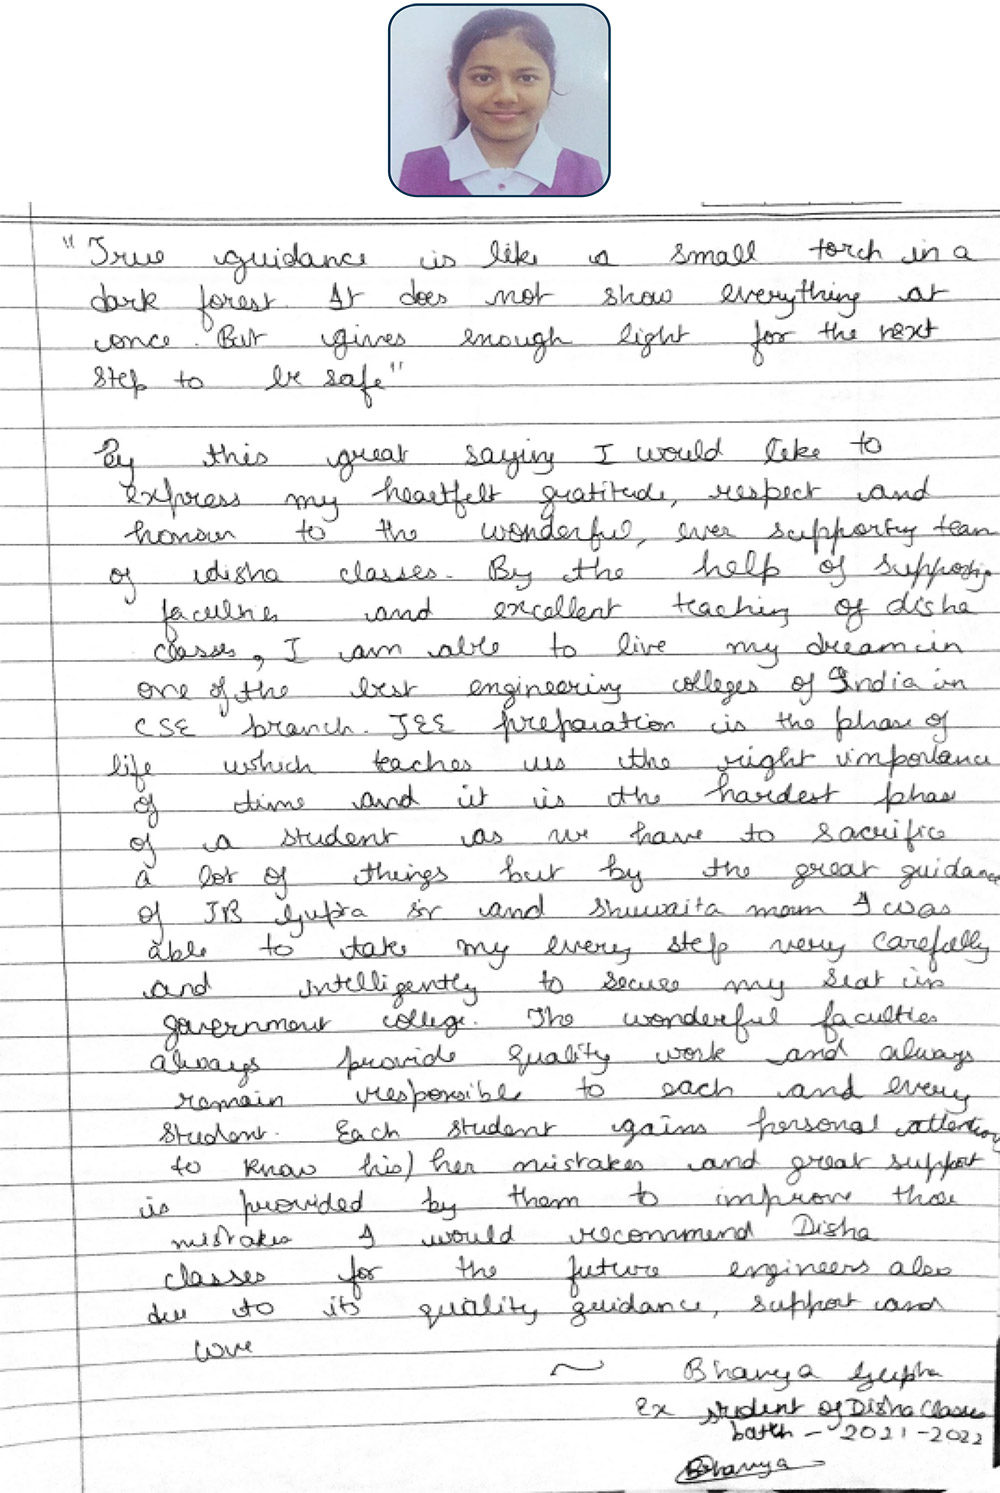 "True guidance is like a small torch in a
dark forest. It does not show everything at
once. But gives enough light for the next
step to be safe"
By this great saying I would like to
express my heartfelt gratitude, respect and
honour to the wonderful, ever supporty team
of disha classes. By the help of supporting
faculties and excellent teaching of disha
classes, I am able to live my dream in
one of the best engineering colleges of India in
CSE branch. JEE preparation is the phase of
life which teaches us the right importance
of time and it is the hardest phase
of a student as we have to sacrifice
a lot of things but by the great guidance
of JB Gupta sir and Shuwaita mam I was
able to take my every step very carefully
and intelligently to secure my seat in
government college. The wonderful faculties
always provide quality work and always
remain responsible to each and every
student. Each student gains personal attention
to know his/her mistakes and great support
is provided by them to improve those
mistakes I would recommend Disha
classes for the future engineers also
due to its quality guidance, support and
love
~ Bhavya Gupta
Ex student of Disha Classes
batch - 2021-2022
Bhavya